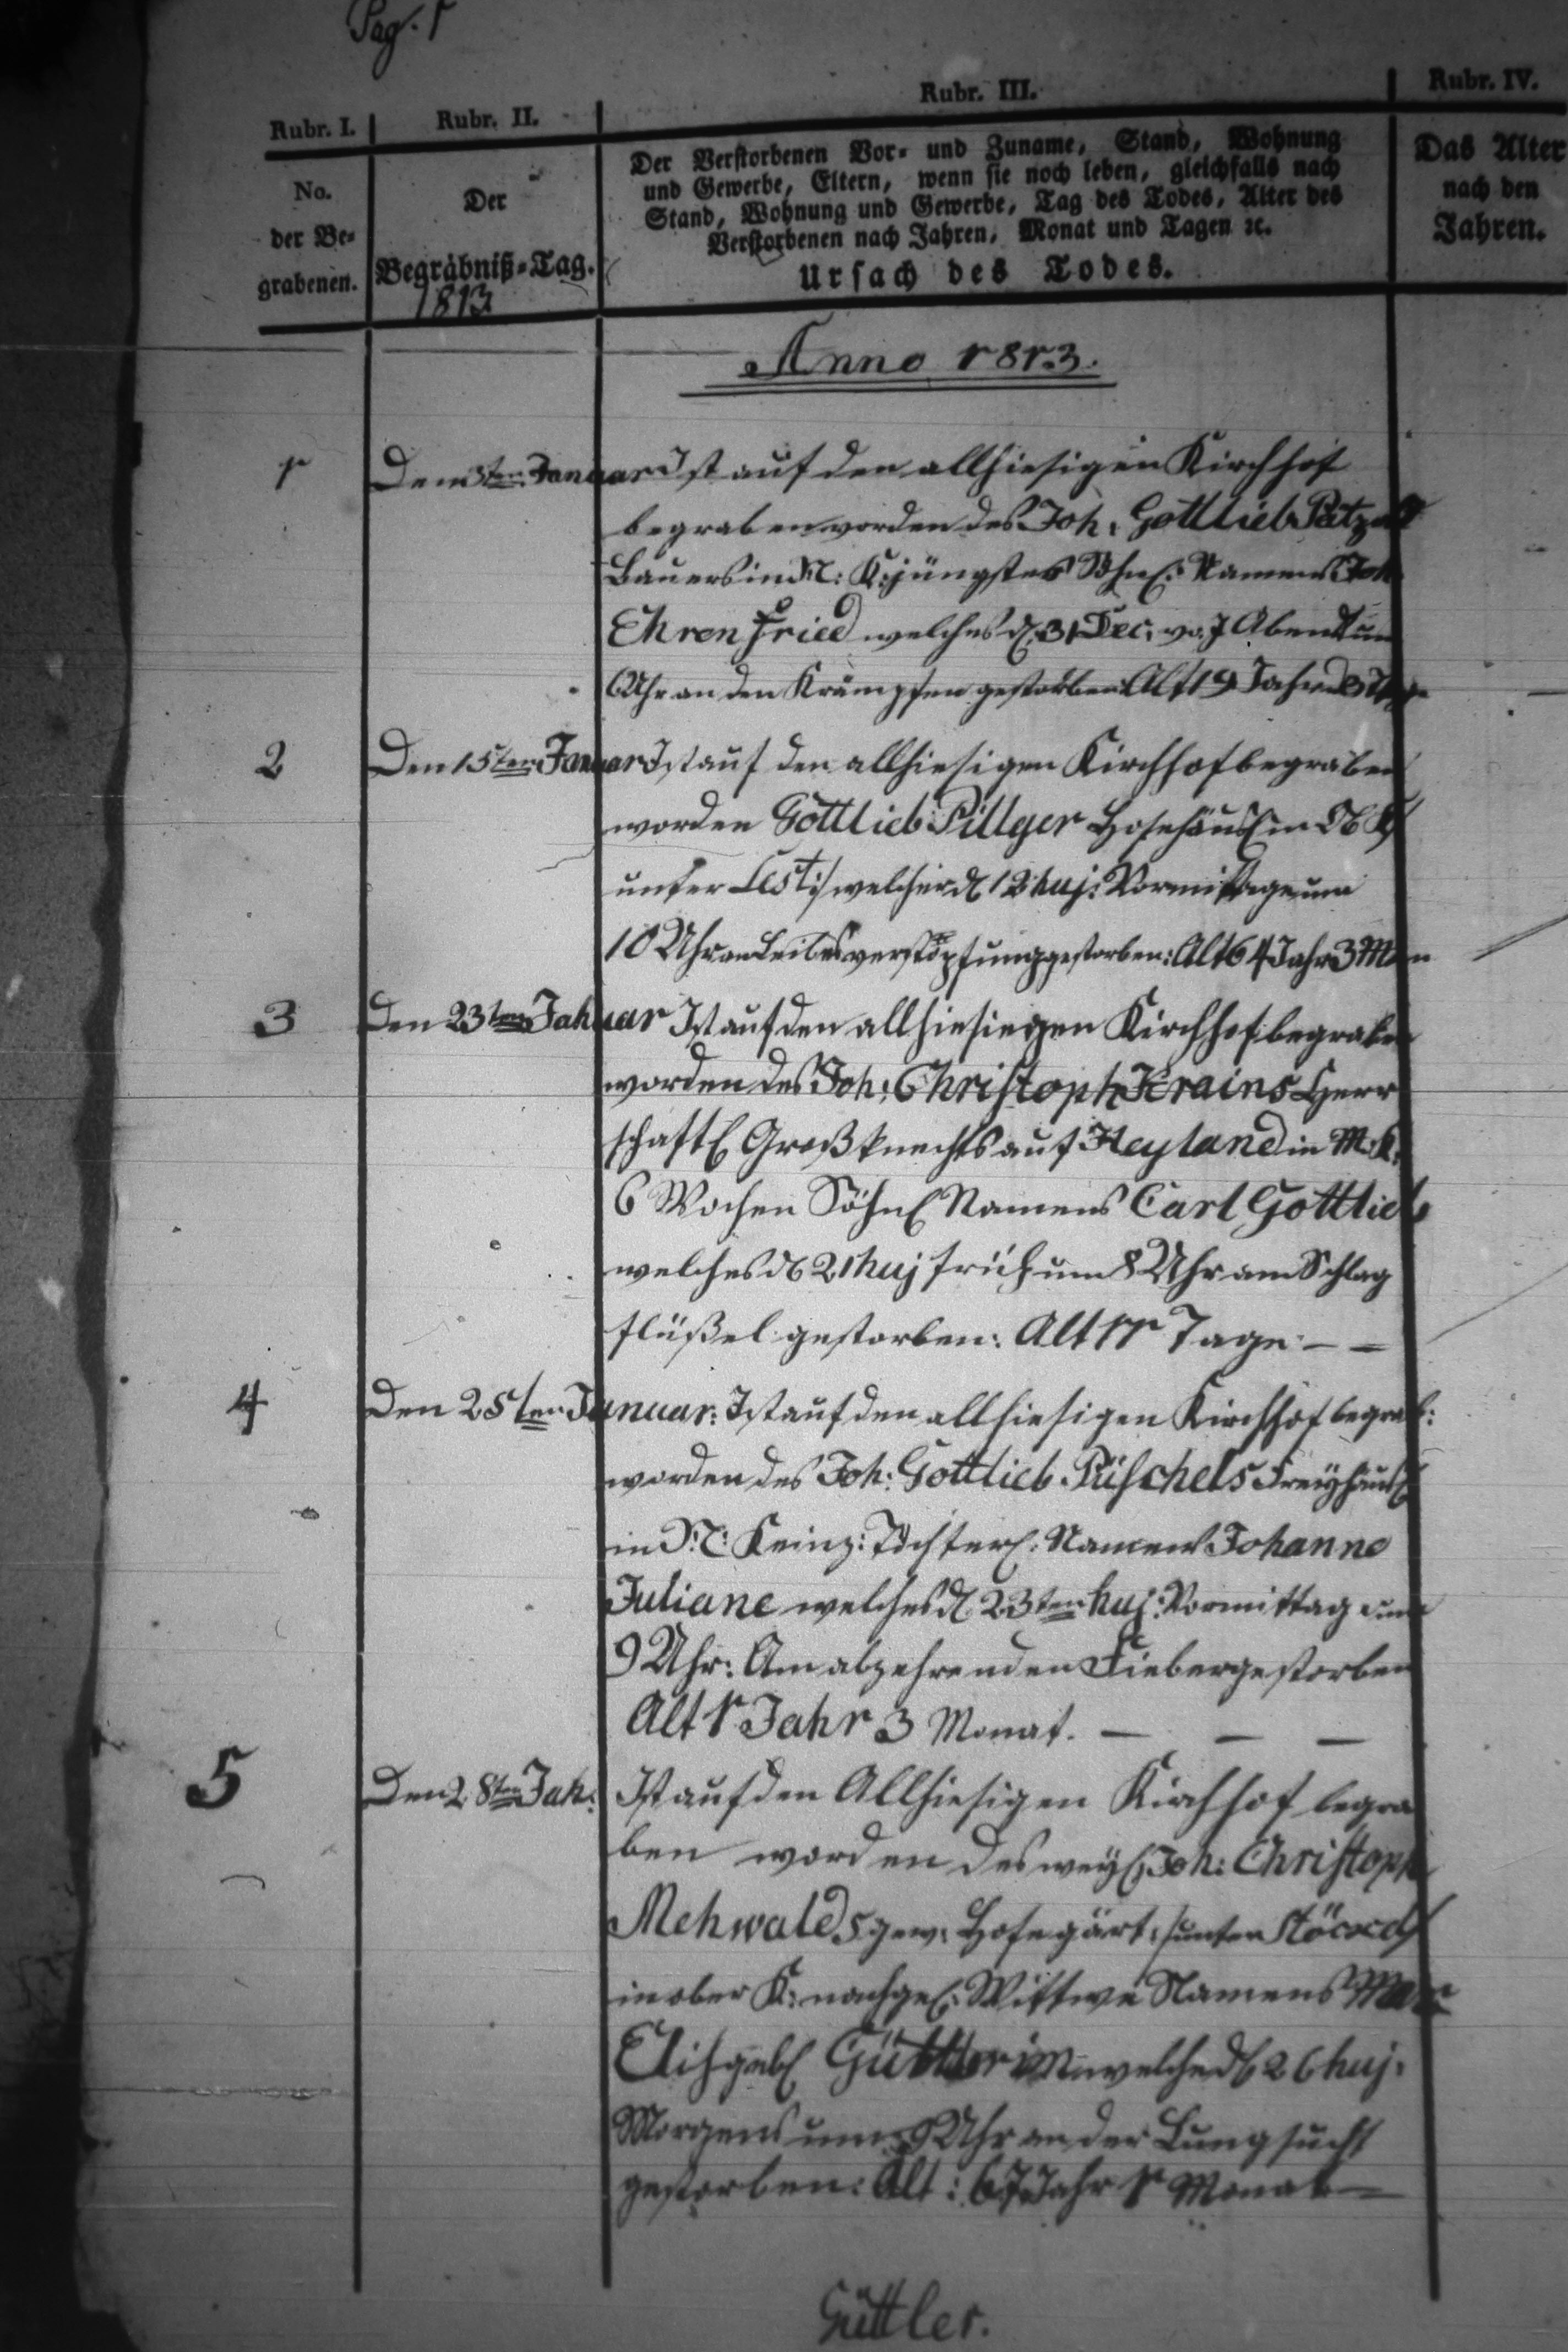 Pag. 1
Rubr. I.
Rubr. II.
Rubr. III.
Rubr. IV.
No.
der Be-
grabenen.
Der
Begräbniß-Tag.
1813
Der Verstorbenen Vor- und Zuname, Stand, Wohnung
und Gewerbe, Eltern, wenn sie noch leben, gleichfalls nach
Stand, Wohnung und Gewerbe, Tag des Todes, Alter des
Verstorbenen nach Jahren, Monat und Tagen ꝛc.
Ursach des Todes.
Das Alter
nach den
Jahren.
Anno 1813.
1 Den 3ten Januar Ist auf den allhiesigen Kirchhof
begraben worden des Joh: Gottlieb
Bauers in N: K: jüngstes Söhnl: Namens Joh
Ehrenfried welches d. 31 Dec. v. J Abend um
6 Uhr an den Krämpfen gestorben Alt 19 Jahr
2 Den 15ten Januar Ist auf den allhiesigen Kirchhof begraben
worden Gottlieb Pillger Hofehäusl in Ob K
unter welcher d 12 huj: Vormittage um
10 Uhr an Leibesverstopfung gestorben: Alt 64 Jahr 3 Mon
3 Den 23ten Januar Ist auf den allhiesiegen Kirchhof begraben
worden des Joh: Christoph Krains Herr
schaftl Großknechts auf Heyland in M: K.
6 Wochen Söhnl Namens Carl Gottlieb
welches d 21 huj früh um 8 Uhr am Schlag
flüßel gestorben: Alt 11 Tage - -
4 Den 25ten Januar: Ist auf den allhiesigen Kirchhof begrab:
worden des Joh: Gottlieb Püschels Freyhäusl
in N: K einz: Töchterl: Namens Johanne
Juliane welches d 23ten huj: Vormittag um
9 Uhr: Am abzehrenden Fieber gestorben
Alt 1 Jahr 3 Monat. — — —
5 Den 28ten Jan: Ist auf den Allhiesigen Kirchhof begra
ben worden des weyl Joh: Christoph
Mehwalds gew: Hofegärt: /unter
in ober K: nachgel: Wittwe Namens
Elis gebl Güttlerin welche d 26 huj.
Morgens um 9 Uhr an der Lungsucht
gestorben: Alt: 67 Jahr 1 Monat —
Güttler.